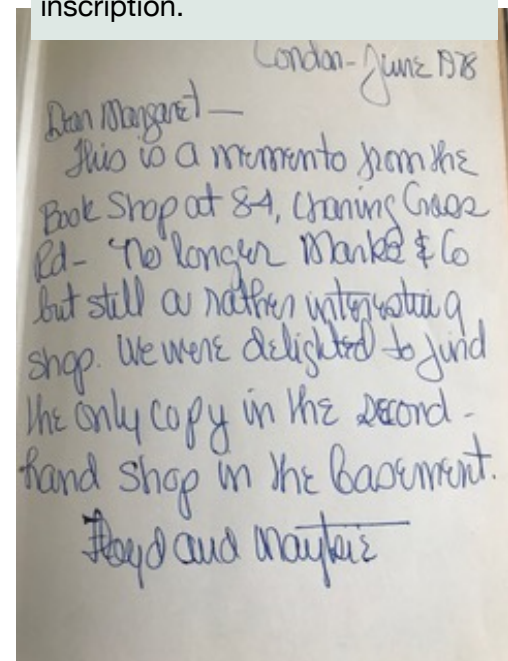 inscription.
London - June 1978
Dear Margaret —
This is a memento from the
Book Shop at 84, Charing Cross
Rd - No longer Marks & Co
but still a rather interesting
shop. We were delighted to find
the only copy in the second-
hand shop in the basement.
Floyd and